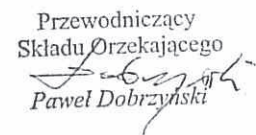 Przewodniczący
Składu Orzekającego
Paweł Dobrzyński